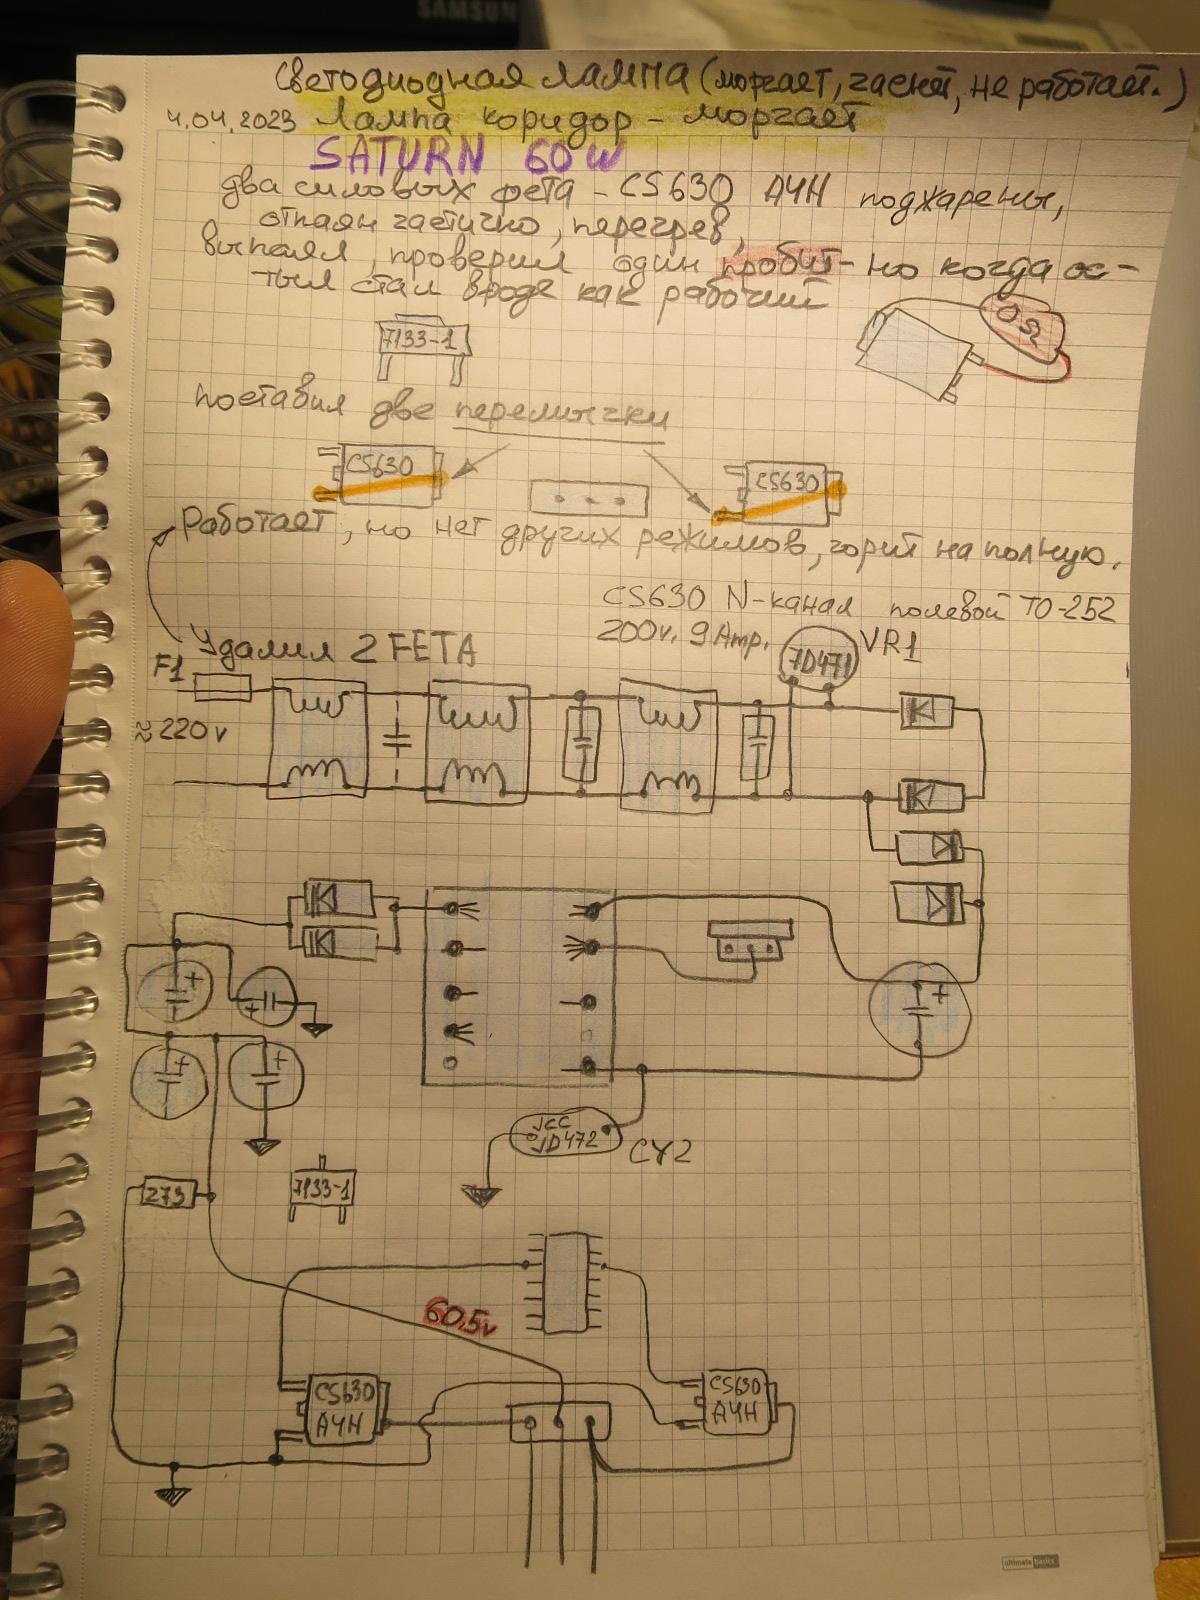 SAMSUNG
Светодиодная лампа (моргает, гаснет, не работает.)
4.04.2023 Лампа коридор - моргает
SATURN 60W
два силовых фета - CS630 A4H поджарены,
отпаян частично, перегрев,
выпаял, проверил один пробит - но когда ос-
тыл стал вроде как рабочий
7133-1
0Ω
поставил две перемычки
CS630
CS630
Работает, но нет других режимов, горит на полную.
CS630 N-канал полевой TO-252
200v. 9 Amp.
Удалил 2 FETA
7D471
VR1
F1
≈220v
+
+
+
+
+
JCC
JD472
CY2
273
7133-1
60.5v
CS630
A4H
CS630
A4H
ultimate basics